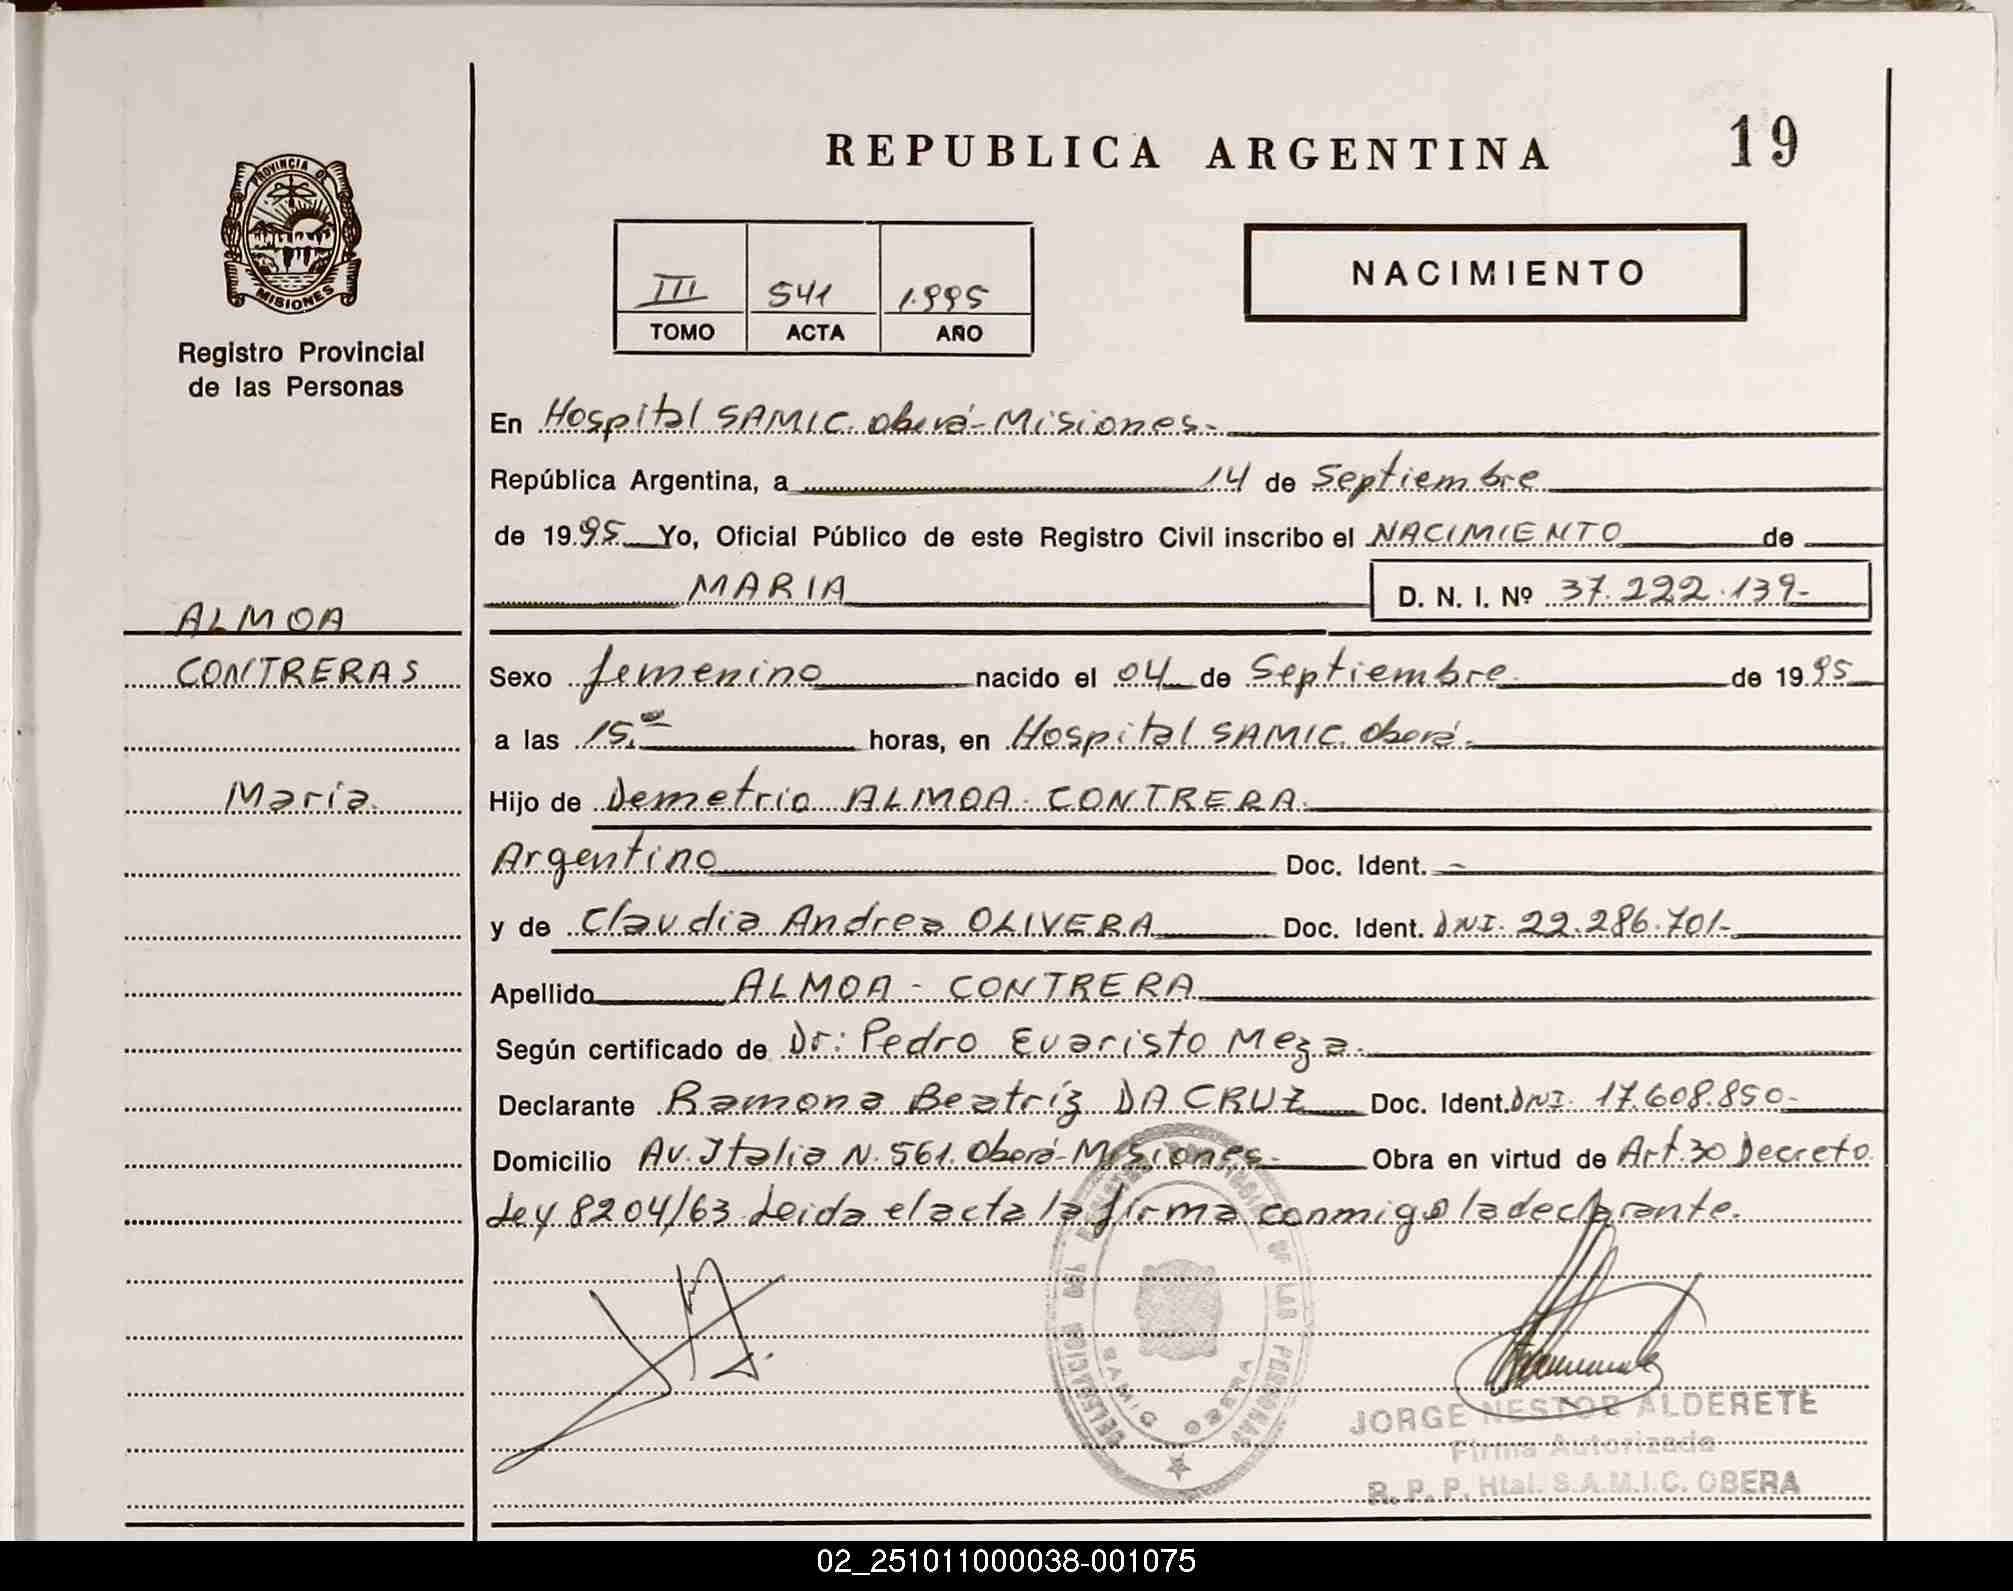 REPUBLICA ARGENTINA
19
PROVINCIA DE
MISIONES
Registro Provincial
de las Personas
NACIMIENTO
III 541 1.995
TOMO ACTA AÑO
En Hospital SAMIC. oberá-Misiones-
República Argentina, a 14 de Septiembre
de 1995 Yo, Oficial Público de este Registro Civil inscribo el NACIMIENTO de
MARIA D. N. I. Nº 37.222.139-
ALMOA
CONTRERAS
María.
Sexo femenino nacido el 04 de Septiembre de 1995
a las 15.00 horas, en Hospital SAMIC. Oberá-
Hijo de Demetrio ALMOA-CONTRERA.
Argentino Doc. Ident. -
y de Claudia Andrea OLIVERA Doc. Ident. DNI. 22.286.701-
Apellido ALMOA - CONTRERA
Según certificado de Dr: Pedro Evaristo Meza.
Declarante Ramona Beatríz DA CRUZ Doc. Ident. DNI. 17.608.850-
Domicilio Av. Italia N. 561. Oberá-Misiones- Obra en virtud de Art. 30 Decreto
Ley 8204/63. Leida el acta la firma conmigo la declarante.
SAMIC OBERA
JORGE NESTOR ALDERETE
Firma Autorizada
R. P. P. Htal. S.A.M.I.C. OBERA
02_251011000038-001075